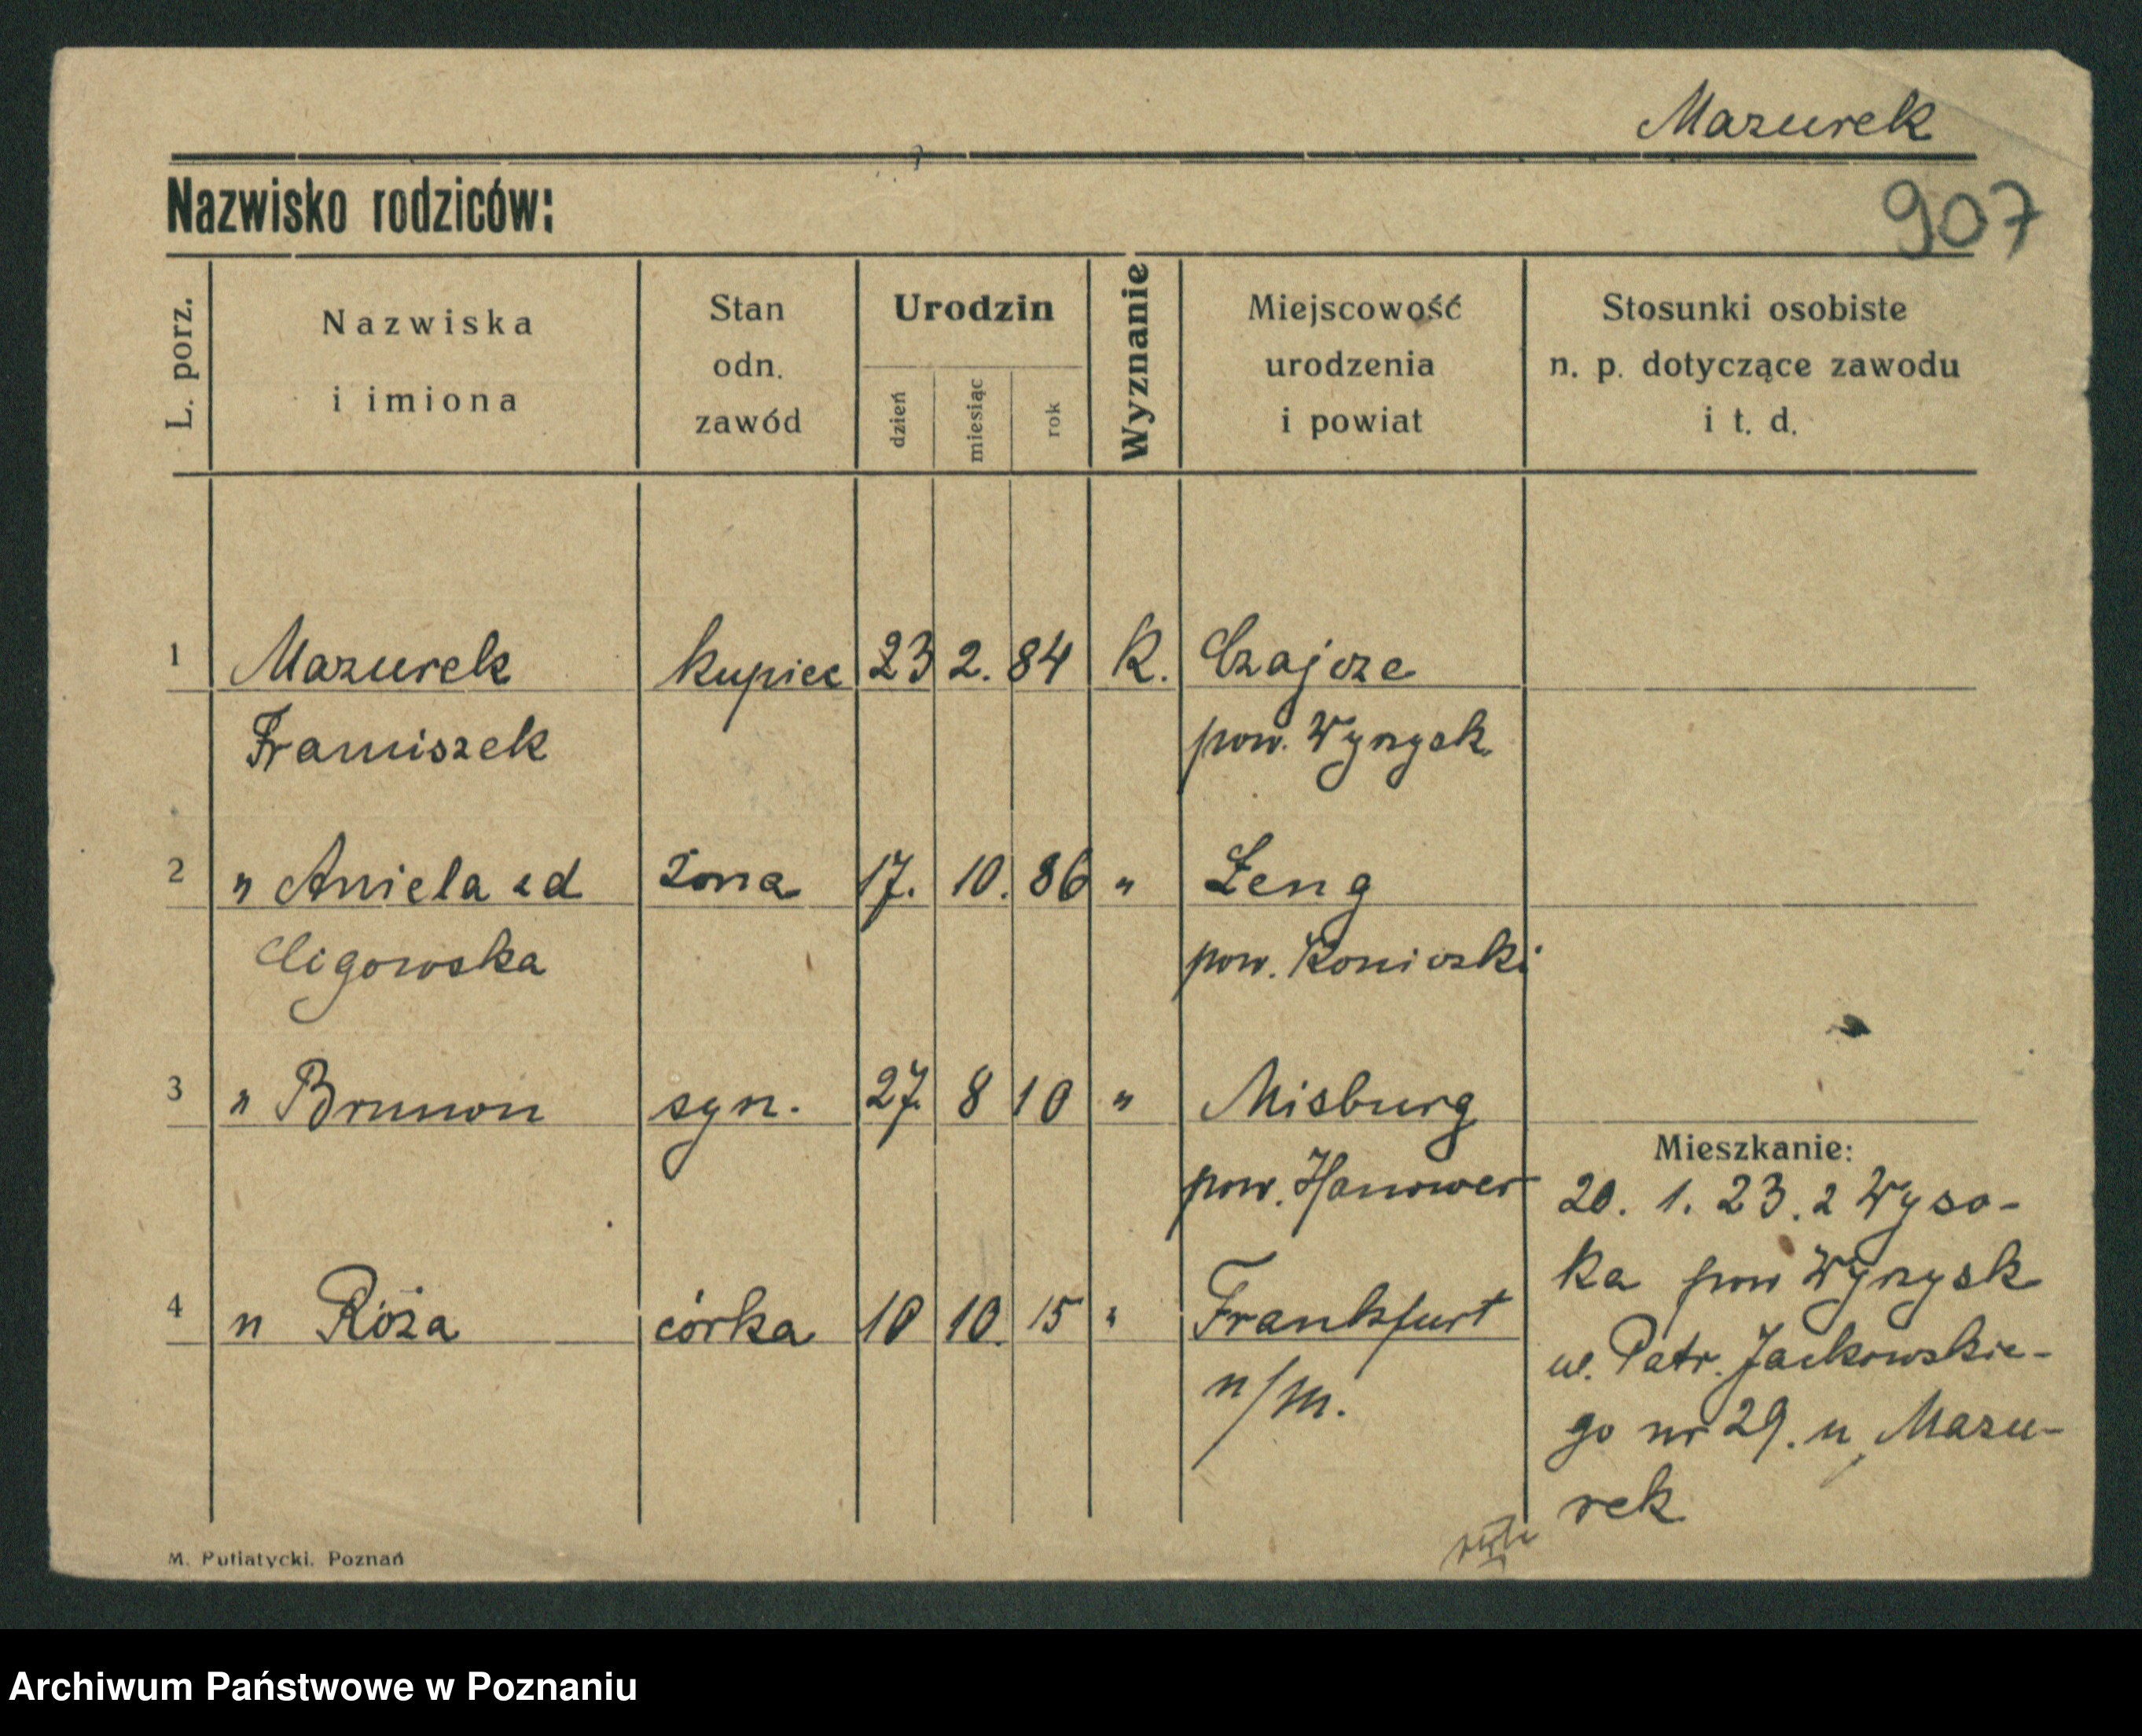 Mazurek
Nazwisko rodziców:
907
L. porz.
Nazwiska
i imiona
Stan
odn.
zawód
Urodzin
dzień
miesiąc
rok
Wyznanie
Miejscowość
urodzenia
i powiat
Stosunki osobiste
n. p. dotyczące zawodu
i t. d.
1 Mazurek kupiec 23 2. 84 K. Czajcze
Franciszek pow. Wyrzysk
2 " Aniela zd żona 17. 10. 86 " Łeng
Cligowska pow. Koniczki
3 " Brunon syn. 27. 8 10 " Misburg
pow. Hanower
4 " Róża córka 10 10. 15 " Frankfurt
n/M.
Mieszkanie:
20. 1. 23. z Wyso-
ka pow Wyrzysk
ul. Patr. Jackowskie-
go nr 29. u Mazu-
rek
M. Putiatycki. Poznań
Archiwum Państwowe w Poznaniu